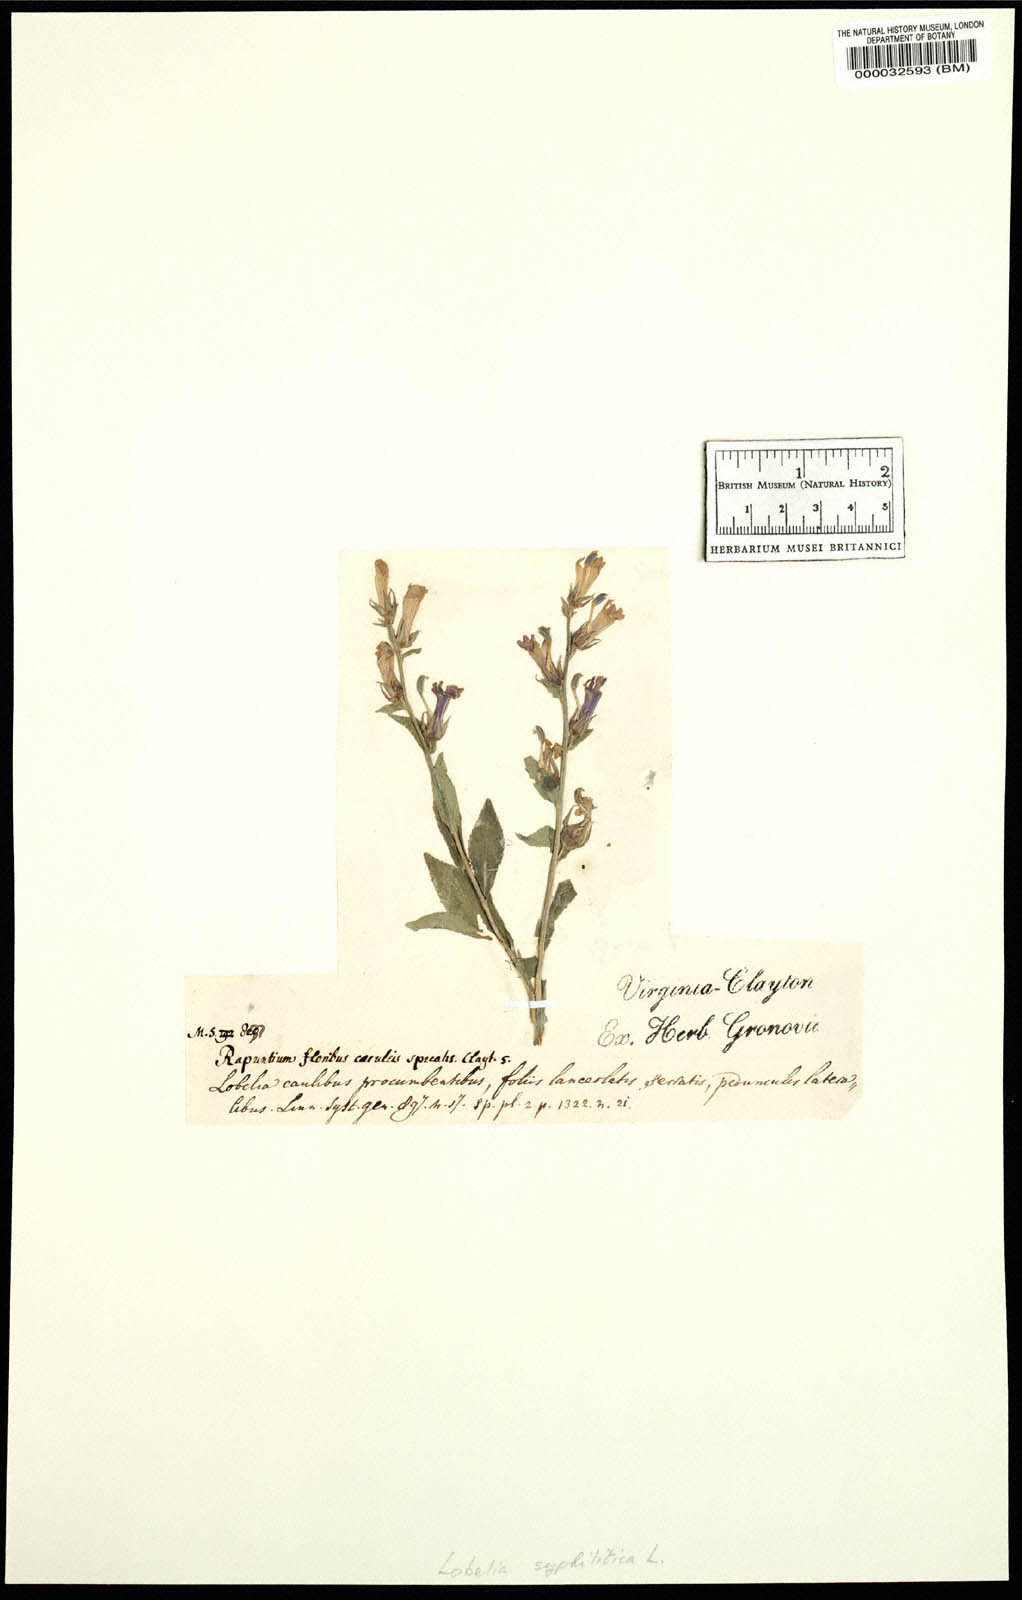 THE NATURAL HISTORY MUSEUM, LONDON
DEPARTMENT OF BOTANY
000032593 (BM)
1 2
BRITISH MUSEUM (NATURAL HISTORY)
1 2 3 4 5
HERBARIUM MUSEI BRITANNICI
Virginia-Clayton
Ex. Herb Gronovii
M.S.
Rapuntium floribus cæruleis spicatis. Clayt. 5.
Lobelia caulibus procumbentibus, foliis lanceolatis serratis, pedunculis latera„
libus. Linn. Syst. gen. 897. n. 17. sp. pl. 2 p. 1322. n. 21.
Lobelia syphilitica L.